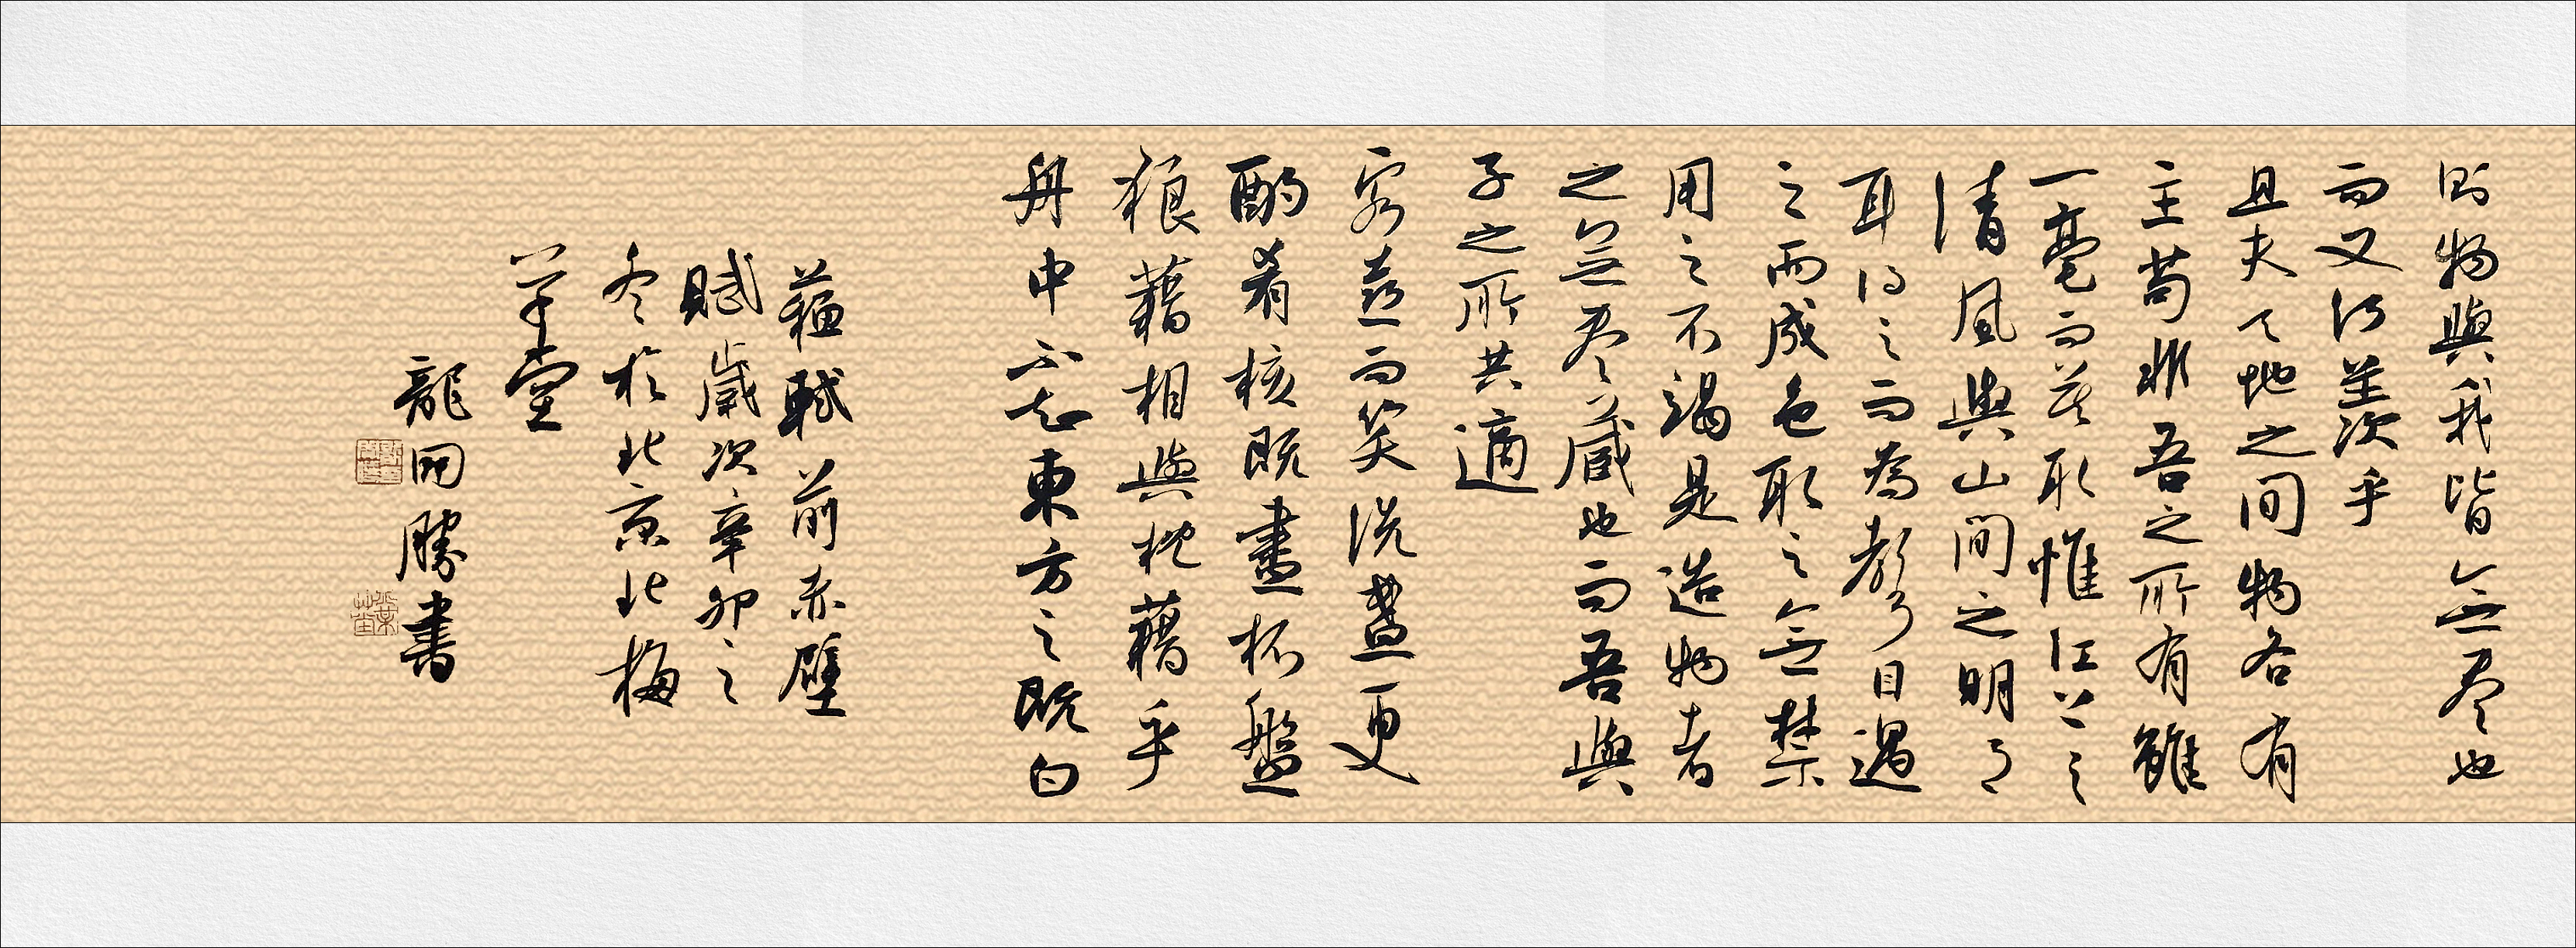 則物與我皆無盡也
而又何羨乎
且夫天地之間物各有
主苟非吾之所有雖
一毫而莫取惟江上之
清風與山間之明月
耳得之而為聲目遇
之而成色取之無禁
用之不竭是造物者
之無盡藏也而吾與
子之所共適
客喜而笑洗盞更
酌肴核既盡杯盤
狼藉相與枕藉乎
舟中不知東方之既白
蘇軾前赤壁
賦歲次辛卯之
冬於北京北梅
草堂
龍開勝書